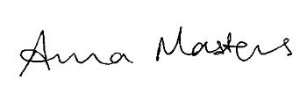 Anna Masters